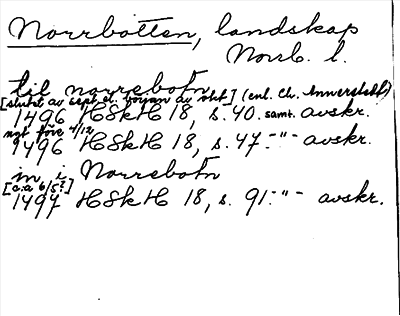 Norrbotten, landskap
Norrb. l.
til norrebotn
[slutet av sept. el. början av okt.] (enl. Cl. Annerstedt)
1496 HSkH 18, s. 40. samt. avskr.
ngt före 4/12
1496 HSkH 18, s. 47. -"- avskr.
in i Norrebotn
[a.a 6/5?]
1497 HSkH 18, s. 91. -"- avskr.